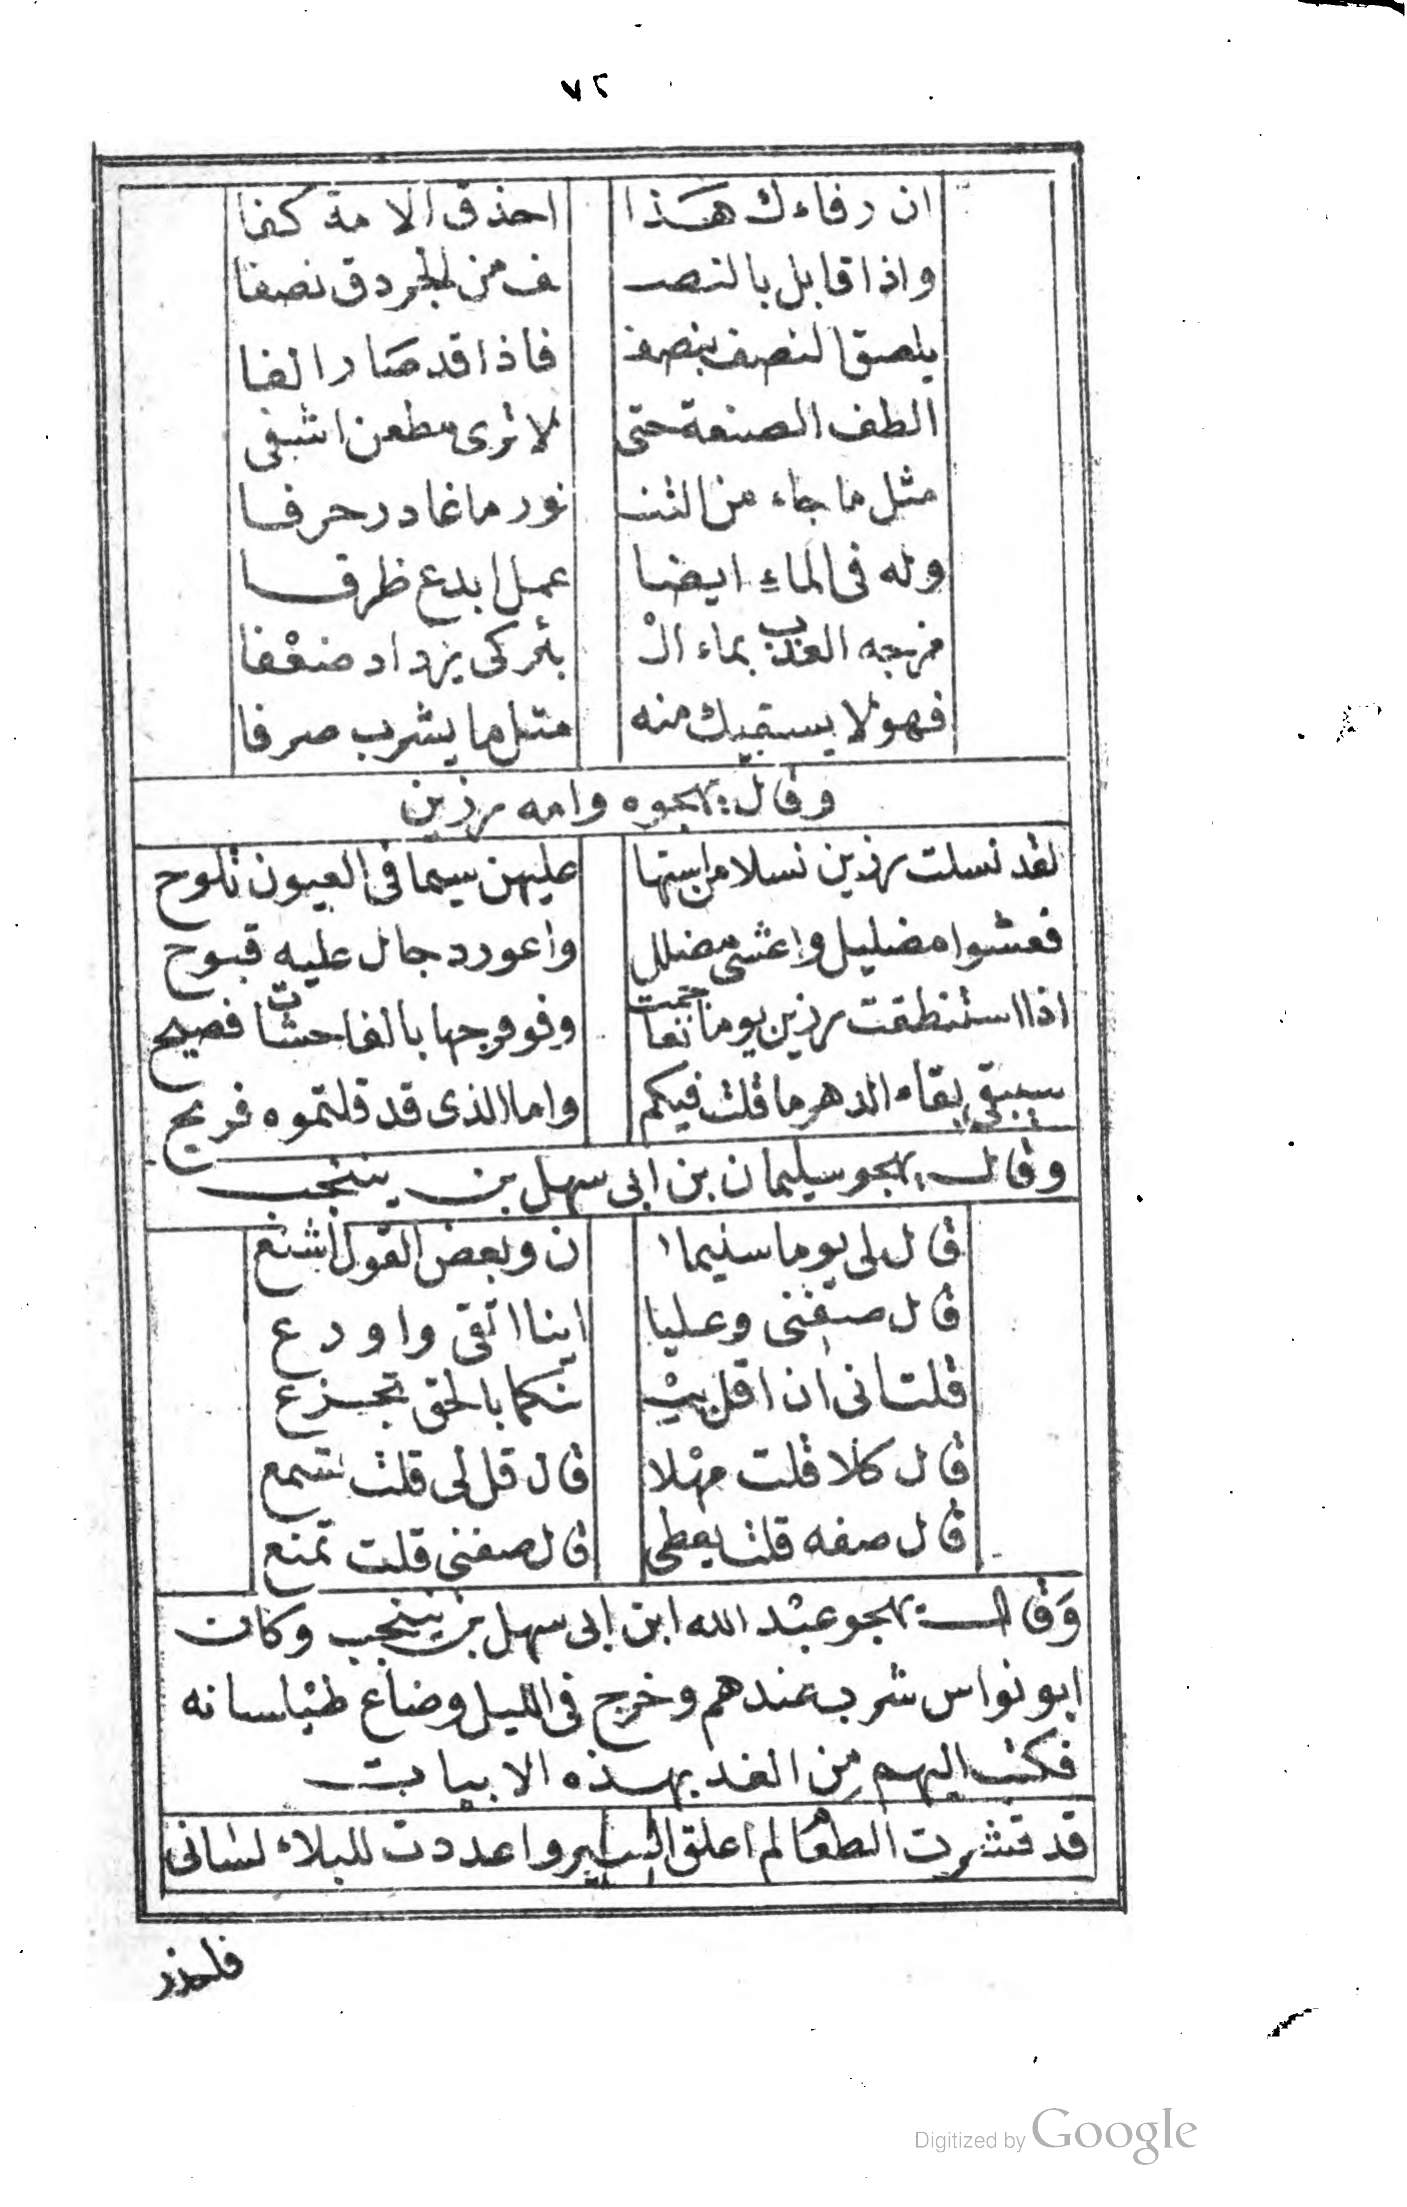 ٧٢
ان رفاءك هذا احذق الامة كفا
واذا قابل بالنصـ ـف من الجردق نصفا
يلصق النصف بنصف فاذا قد صار الفا
الطف الصنعة حتى لا ترى مطعن اشفى
مثل ما جاء من التنـ نور ما غادر حرفا
وله فى الماء ايضا عمل ابدع ظرفا
مزجه العذب بماء الْـ بئر كى يزداد ضعْفا
فهو لا يسقيك منه مثل ما يشرب صرفا
وقال يهجوه وامه رزين
لقد نسلت رزين نسلا من استها عليهن سيما فى العيون تلوح
فعشوا مضليل واعشى مضلل واعور دجال عليه قبوح
اذا استنطقت رزين يوما تفاحمت وفو فرجها بالفاحشات فصيح
سيبقى بقاء الدهر ما قلت فيكم واما الذى قد قلتموه فريح
وقال يهجو سليمان بن ابى سهل بن ينتجب
قال لى يوما سليما ن وبعض القول اشنع
قال صفنى وعليا اينا اتقى واورع
قلت انى ان اقل بيْـ نكما بالحق تجزع
قال كلا قلت مهْلا قال قل لى قلت تسمع
قال صفه قلت يعطى قال صفنى قلت تمنع
وَقال يهجو عبْد الله ابن ابى سهل بن ينتجب وكان
ابو نواس شرب عندهم وخرج فى الليل وضاع طيْلسانه
فكتب اليهم مِن الغد بهذه الابيات
قد قشرت العصا ولم اعلق السير واعددت للبلاء لسانى
Digitized by Google